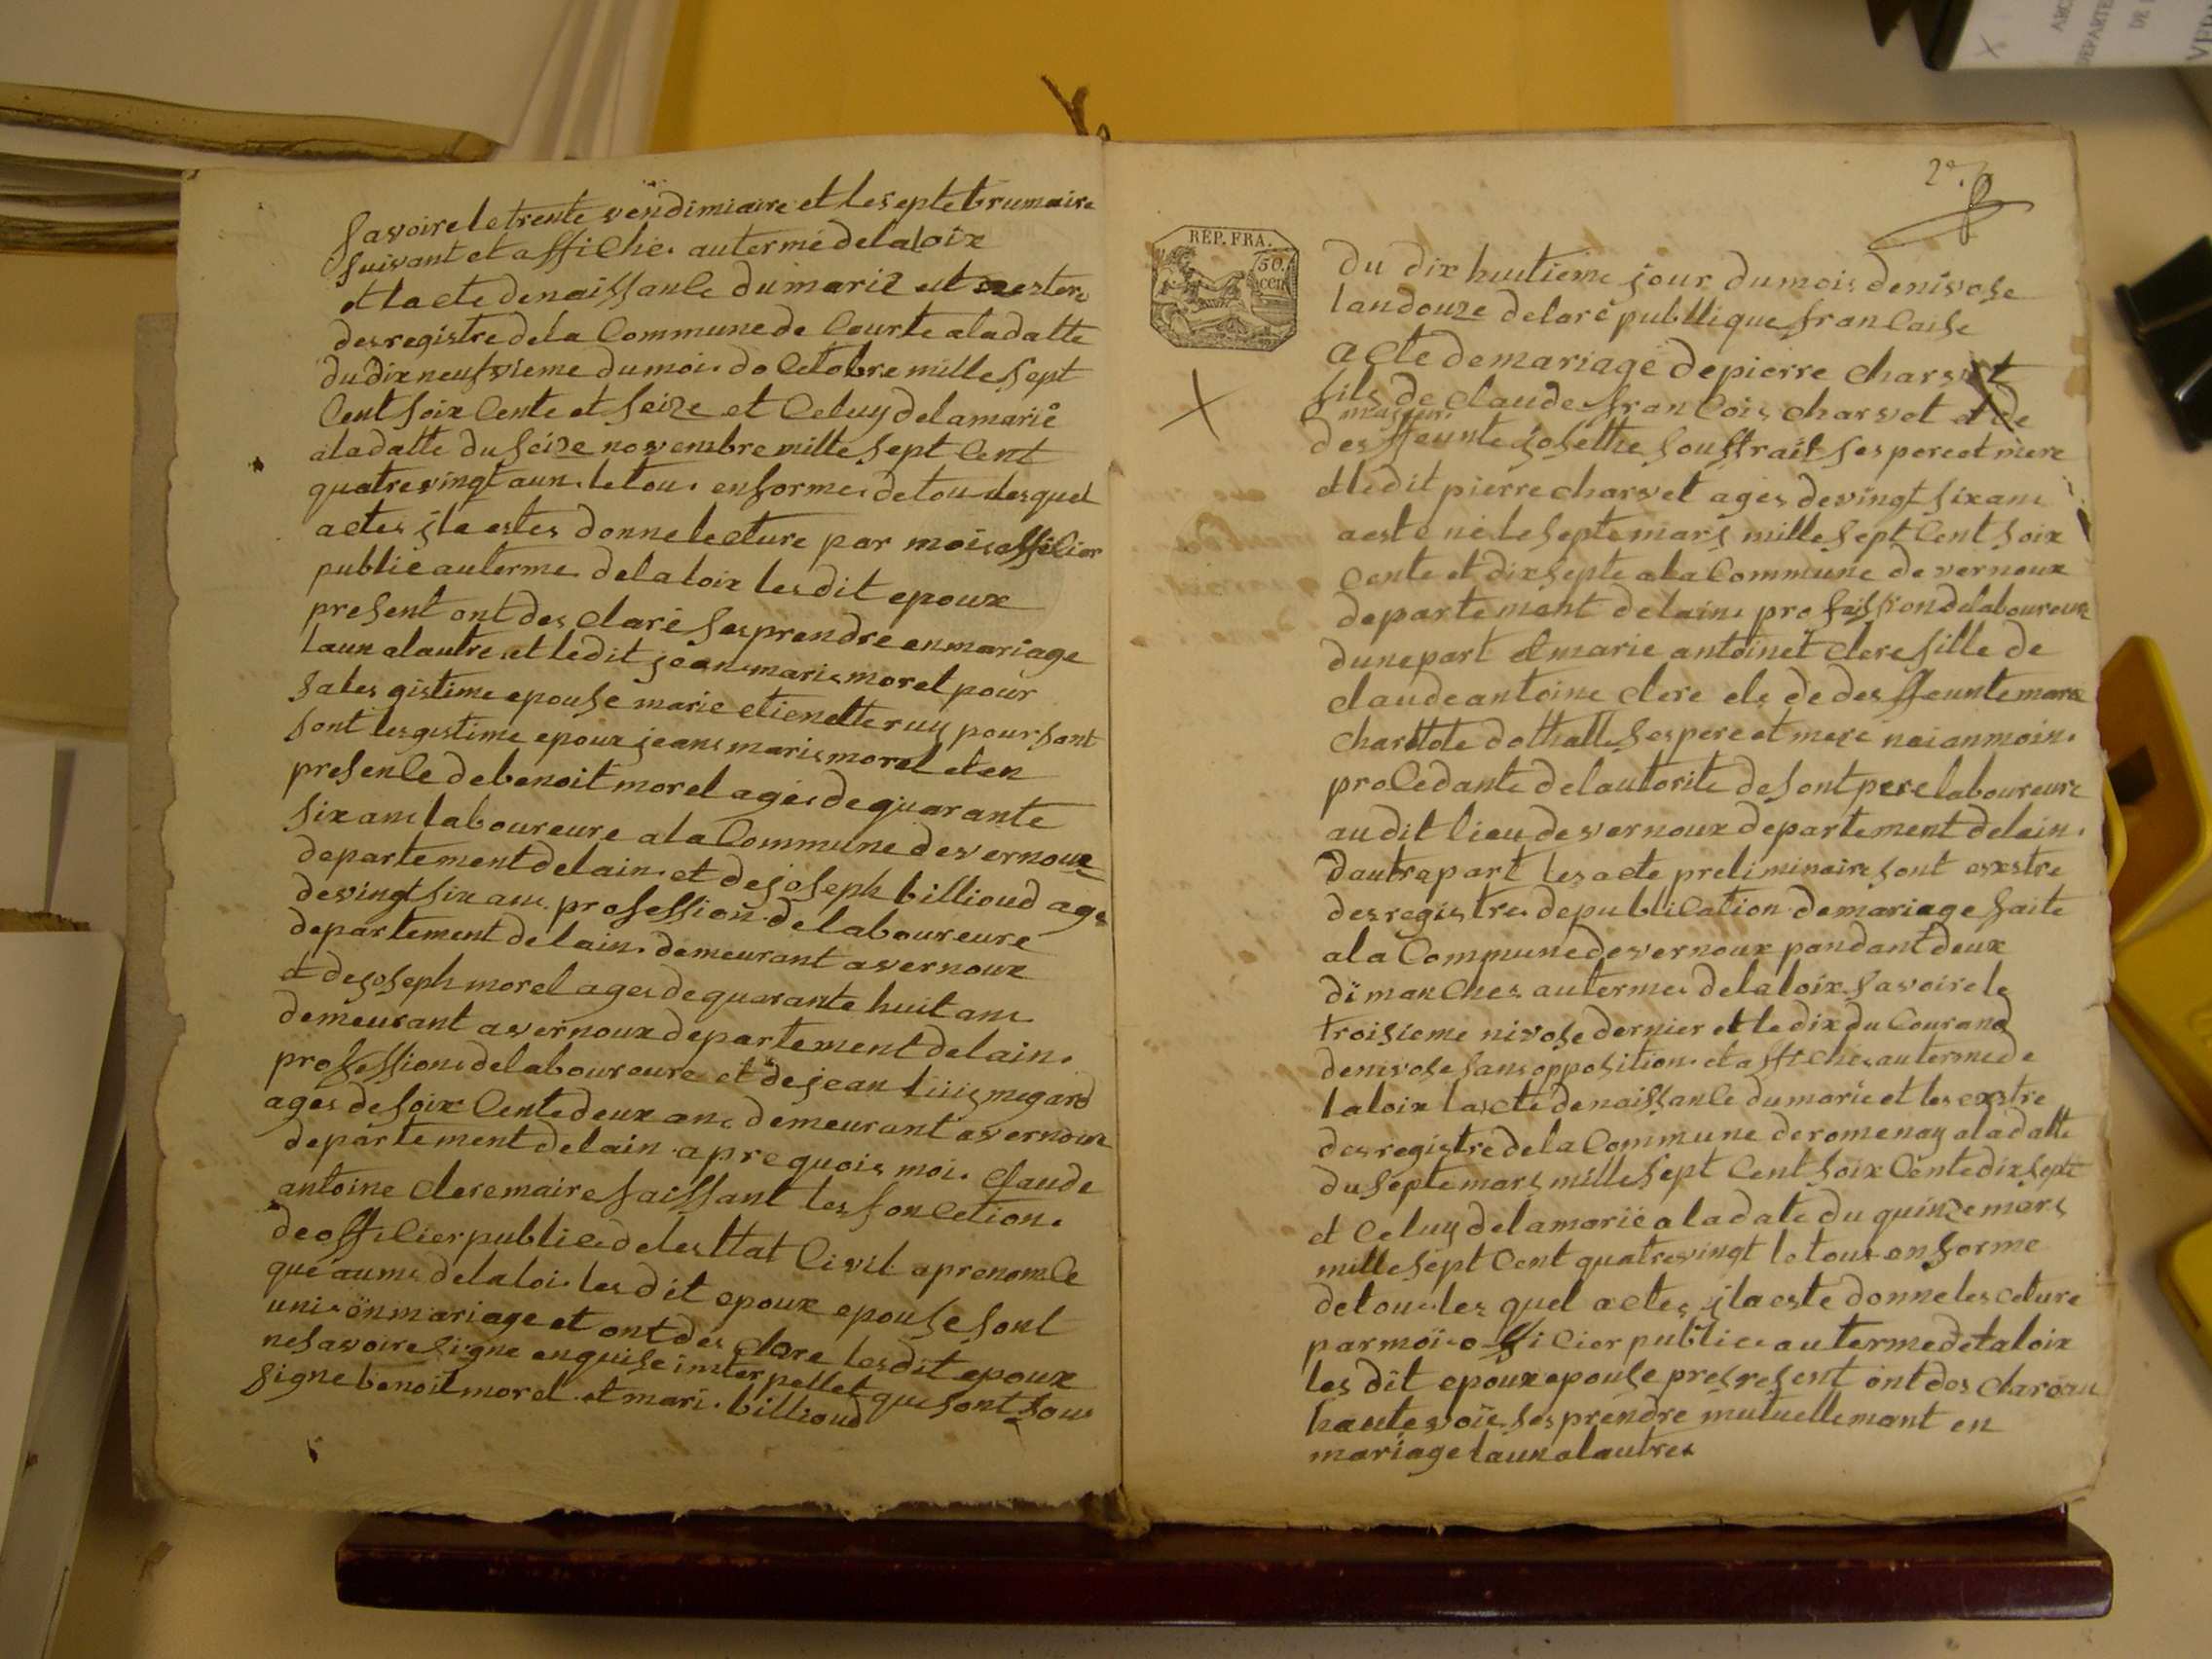 savoire le trente vendimiaire et le septe brumaire
suivant et affiche. au terme de la loix
et la cte de naissance du marié est
des registre de la Commune de Courte a la datte
du dix neufvieme du moi. doctobre mille sept
Cent soix Cente et seize et Celuy de la marié
a la datte du seize novembre mille sept Cent
quatre vingt aun. le tou. en forme. de tou. desquel
actes il a estes donne lecture par moi officier
publié au terme de la loix les dit epoux
present ont des claré ses prendre en mariage
laun a lautre. et le dit jean marie morel pour
sa les gistime epouse marie etienette ruy pour sont
sont les gistime epoux jean marie morel et en
presence de benoit morel ages de quarante
six ans laboureure a la Commune de vernoux
departement de lain. et de joseph billioud age
de vingt six ans profession de laboureure
departement de lain. demeurant a vernoux
et de joseph morel ages de quarante huit ans
demeurant a vernoux departement de lain.
profession de laboureure et de jean megard
ages de soix Cente deux ans demeurant a vernoux
departement de lain apre quois moi. Claude
antoine clere maire faissant les fonction.
de officier publice de lesttat Civil a prenomce
que aume de la loi. les dit epoux epouse sont
uni en mariage et ont des clare les dit epoux
ne savoire signe enquise interpellet que sont sou
signe benoit morel et mari. billioud
2e.
REP. FRA.
50.
CCII
du dix huitieme jour du mois de nivose
landouze de la re publlique francaise
acte de mariage de pierre charvet
fils de claude francois charvet et de
majeur
des ffeunte josethe souffrait ses pere et mere
et le dit pierre charvet ages de vingt six ans
a este né le septe mars mille sept Cent soix
Cente et dix septe a la Commune de vernoux
departement de lain. profaission de laboureur
dune part et marie antoinet clere fille de
claude antoine clere et de des ffeunte mare
charttote dothalle ses pere et mere naianmoin.
procedante de lautorite de sont pere laboureure
au dit lieu de vernoux departement de lain.
dautre part les acte preliminaire sont esxstre
des registre. de publication de mariage faite
a la Commune de vernoux pandant deux
dimanches au terme. de la loix savoire le
troisieme nivose dernier et le dix du Courand
de nivose sans opposition. et affiches au terme de
la loix lacte de naissance du marié et les exstre
des registre de la Commune de romenay a la datte
du septe mars mille sept Cent soix Cente dix sept
et Celuy de la marié a la date du quinze mars
mille sept Cent quatre vingt le tous en forme
de tou. les quel actes il a este donne les cture
par moi officier public. au terme de la loix
les dit epoux epouse present ont des claré au
haute voix ses prendre mutuellemant en
mariage laun a lautre
ARC
DEPARTE
DE L
VERN